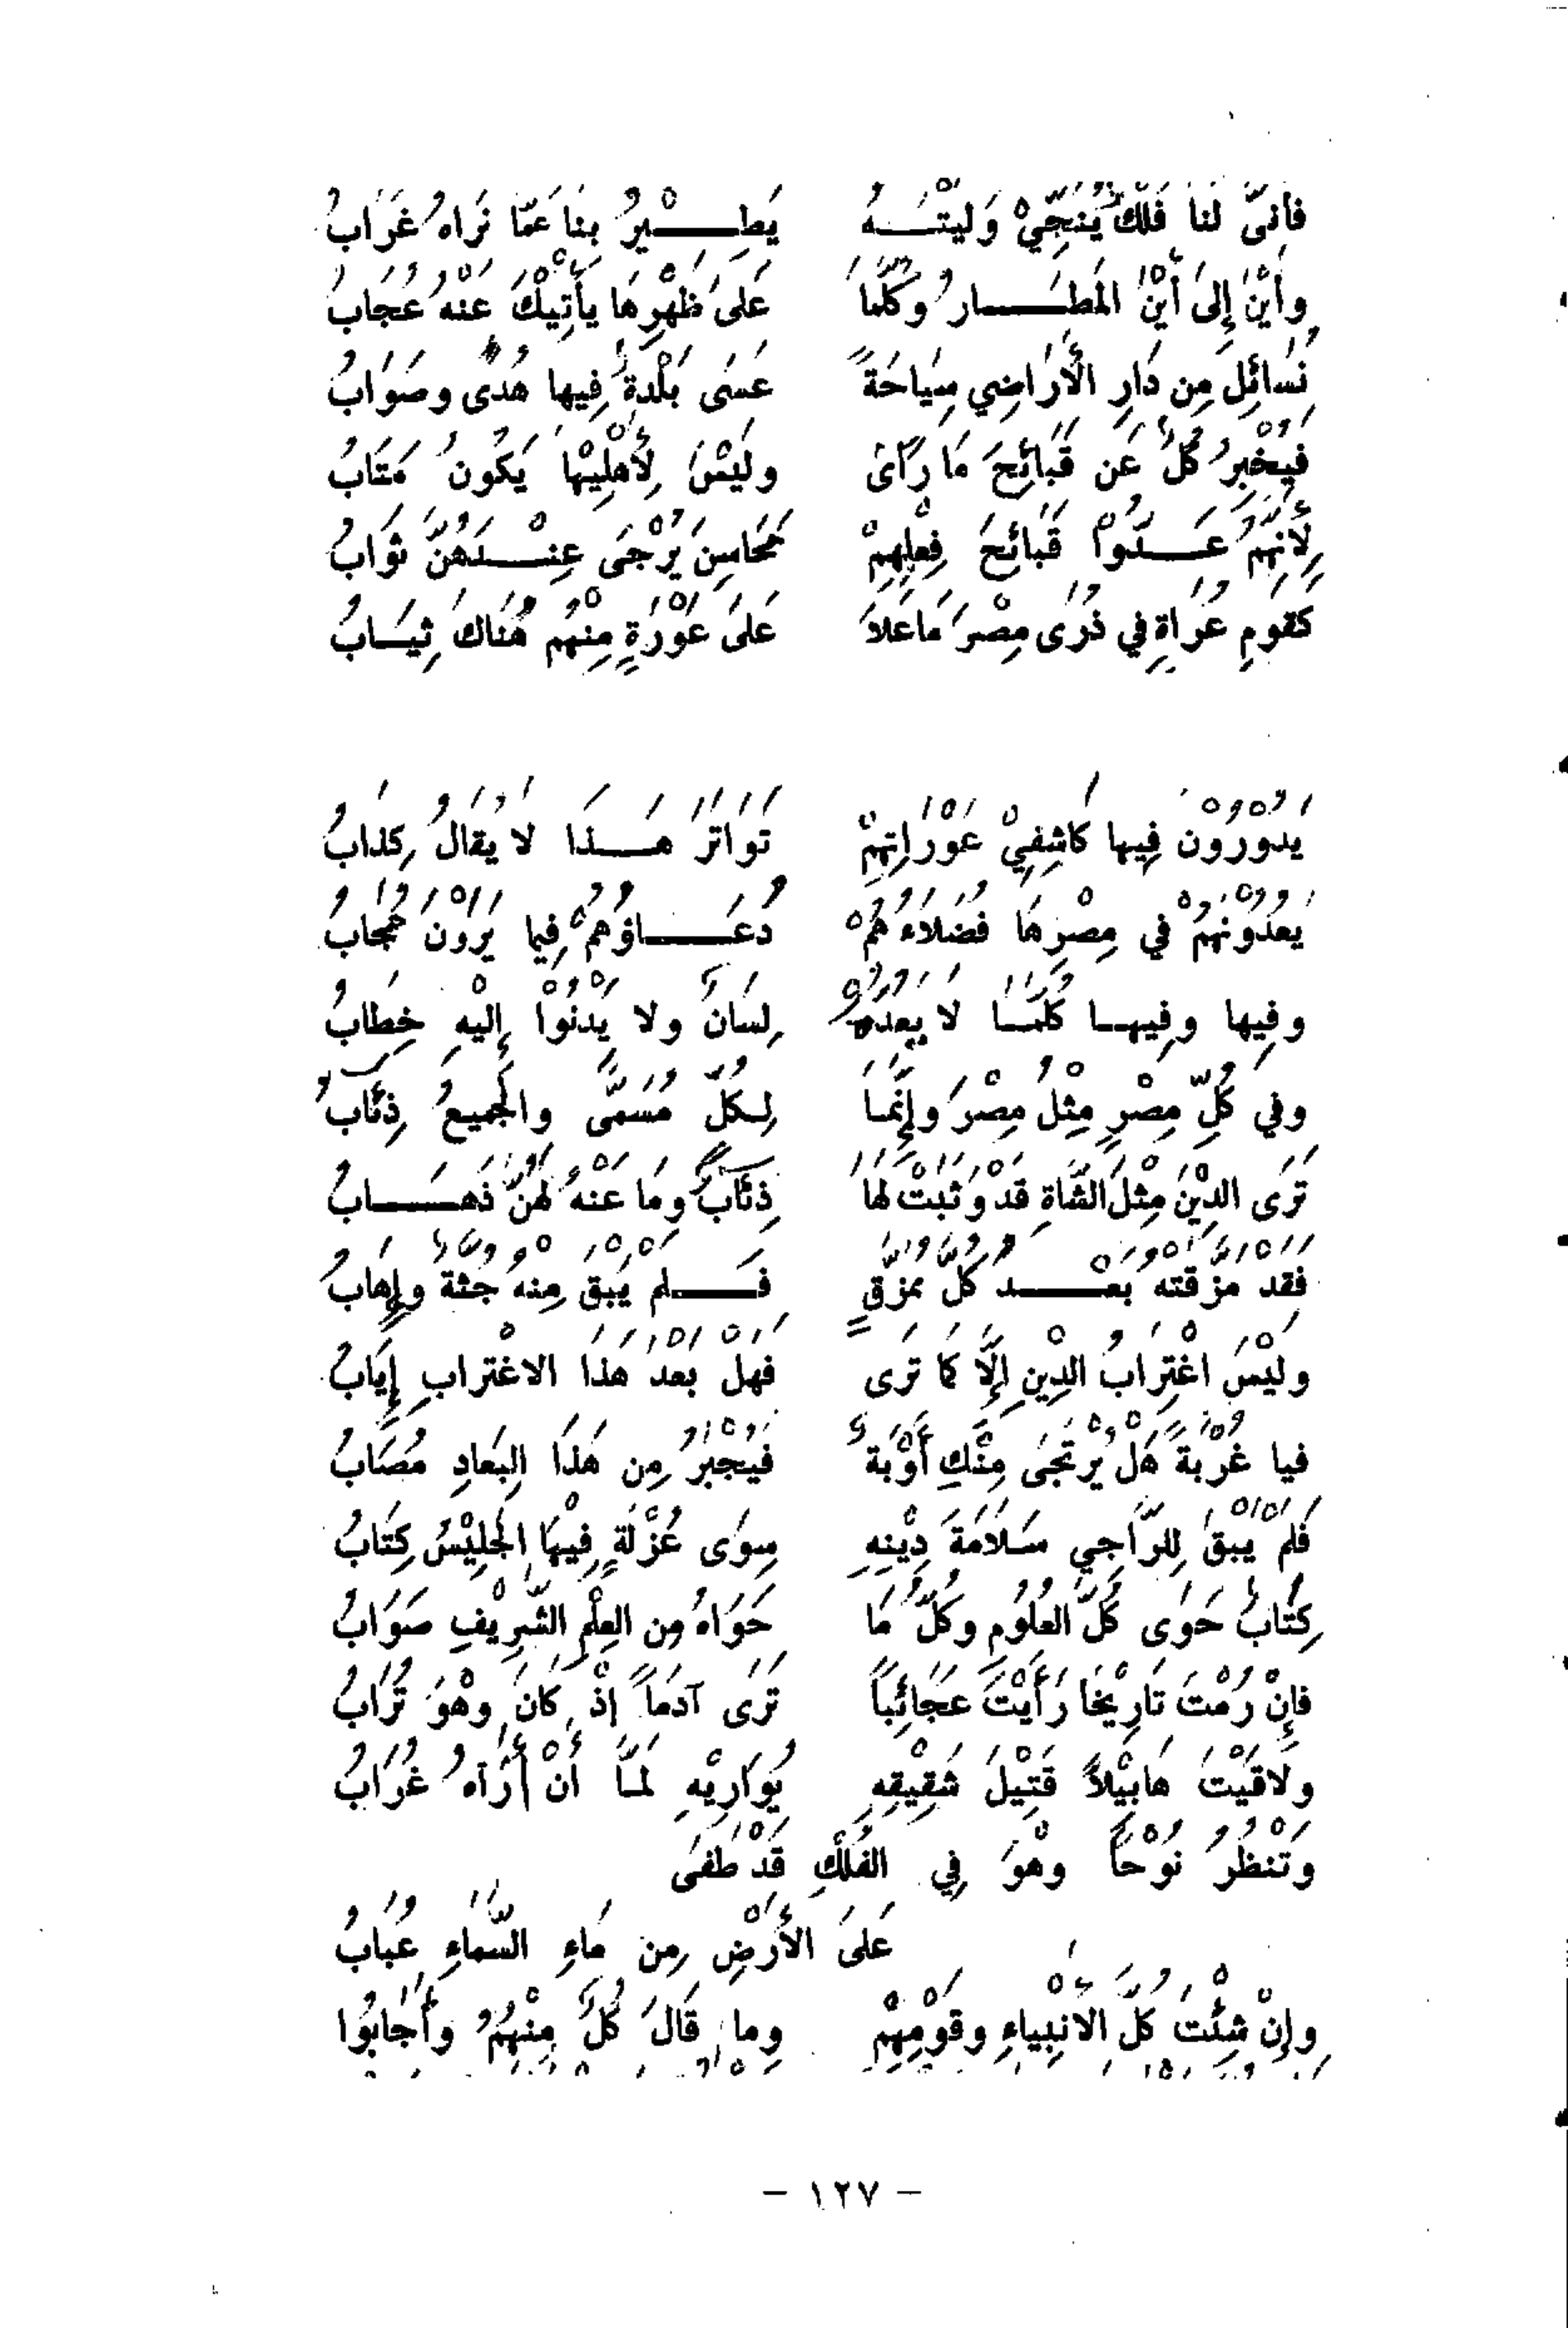 فَأَنَّى لَنَا فَلَكٌ يُنَجِّيْ وَلَيْتَـــهُ يَطِـــيْرُ بِنَا عَمّا نَرَاهُ غَرَابُ
وأَيْنَ إِلَى أَيْنَ المَطَـــار وَكُلَّما عَلى ظَهْرِهَا يأَتِيْكَ عَنْهُ عُجَابُ
نُسَائِلُ مِن دَارِ الأَرَاضِي سِيَاحَةً عَسَى بَلْدةٌ فِيها هُدًى وصَوَابُ
فَيُخْبِرُ كُلٌّ عَن قَبَائِحَ مَا رَأَىٰ ولَيْسَ لِأَهْلِيْهَا يَكُونُ مَتَابُ
لِأَنَّهُمُ عَـــدُّوْا قَبَائِحَ فِعْلِهِمْ مَحَاسِنَ يُرْجَى عِنْـــدَهُنَّ ثَوَابُ
كَقومٍ عُرَاةٍ في ذُرَى مِصْرَ مَا عَلاَ عَلىَ عَوْرَةٍ مِنْهُم هُنَاكَ ثِيَـابُ
يَدُورُوْنَ فِيها كَاشِفِيْ عَوْرَاتِهِمْ تَوَاتَرَ هَـــذَا لا يُقَالُ كِذَابُ
يَعُدُّوْنَهُمْ في مِصْرِهَا فُضَلاَءَهُمْ دُعَـــاؤُهُمْ فِيما يَرَوْنَ مُجَابُ
وفِيها وفِيهـا كُلَّمَـا لَا يَعُدُّهُ لِسَانٌ ولا يَدْنُوْا إِلَيْهِ خِطَابُ
وفي كُلِّ مِصْرٍ مِثْلُ مِصْرَ وإِنَّمَـا لِـكُلٍّ مُسَمًّى والجَمِيعُ ذِئَابُ
تَرَى الدِّيْنَ مِثْلَ الشَّاةِ قَدْ وَثَبَتْ لَهَا ذِئَابٌ ومَا عَنْهُ لَهُنَّ ذَهَـــابُ
فَقَدْ مَزَّقَتْهُ بَعْـــدَ كُلِّ مُمَزَّقٍ فَـــلم يَبْقَ مِنْهُ جُثَّةٌ وإِهَابُ
ولَيْسَ اغْتِرَابُ الدِّينِ إِلَّا كَمَا تَرَى فَهَلْ بَعْدَ هَذَا الاغْتَرابِ إِيَابُ
فيا غُرْبَةً هَلْ يُرْتَجَى مِنْكِ أَوْبَةٌ فَيُجْبَرُ مِن هَذَا البِعَادِ مُصَابُ
فَلَمْ يَبْقَ لِلرَّاجي سَلاَمَةَ دِيْنِهِ سِوَى عُزْلَةٍ فِيْهَا الجَلِيْسُ كِتَابُ
كِتَابٌ حَوَى كُلَّ العُلُومِ وكُلُّ مَا حَوَاهُ مِن العِلْمِ الشَّرِيْفِ صَوَابُ
فإِنْ رُمْتَ تَارِيْخَا رَأَيْتَ عَجَائِباً تَرَى آدَماً إِذْ كَانَ وهْوَ تُرَابُ
ولَاقَيْتَ هَابِيْلاً قَتِيْلَ شَقِيْقِهِ يُوَارِيْهِ لَمَّا أَنْ أَرَآهُ غُرَابُ
وَتَنْظُرُ نُوْحَاً وهْوَ فِي الفُلْكِ قَدْ طَفىَ
عَلىَ الأَرْضِ مِن مَاءِ السَّمَاءِ عُبَابُ
وإِنْ شِئْتَ كُلَّ الأَنْبِياءِ وقَوْمِهِمْ وما قَالَ كُلٌّ مِنْهِمُ وأَجَابُوا
– ١٢٧ –